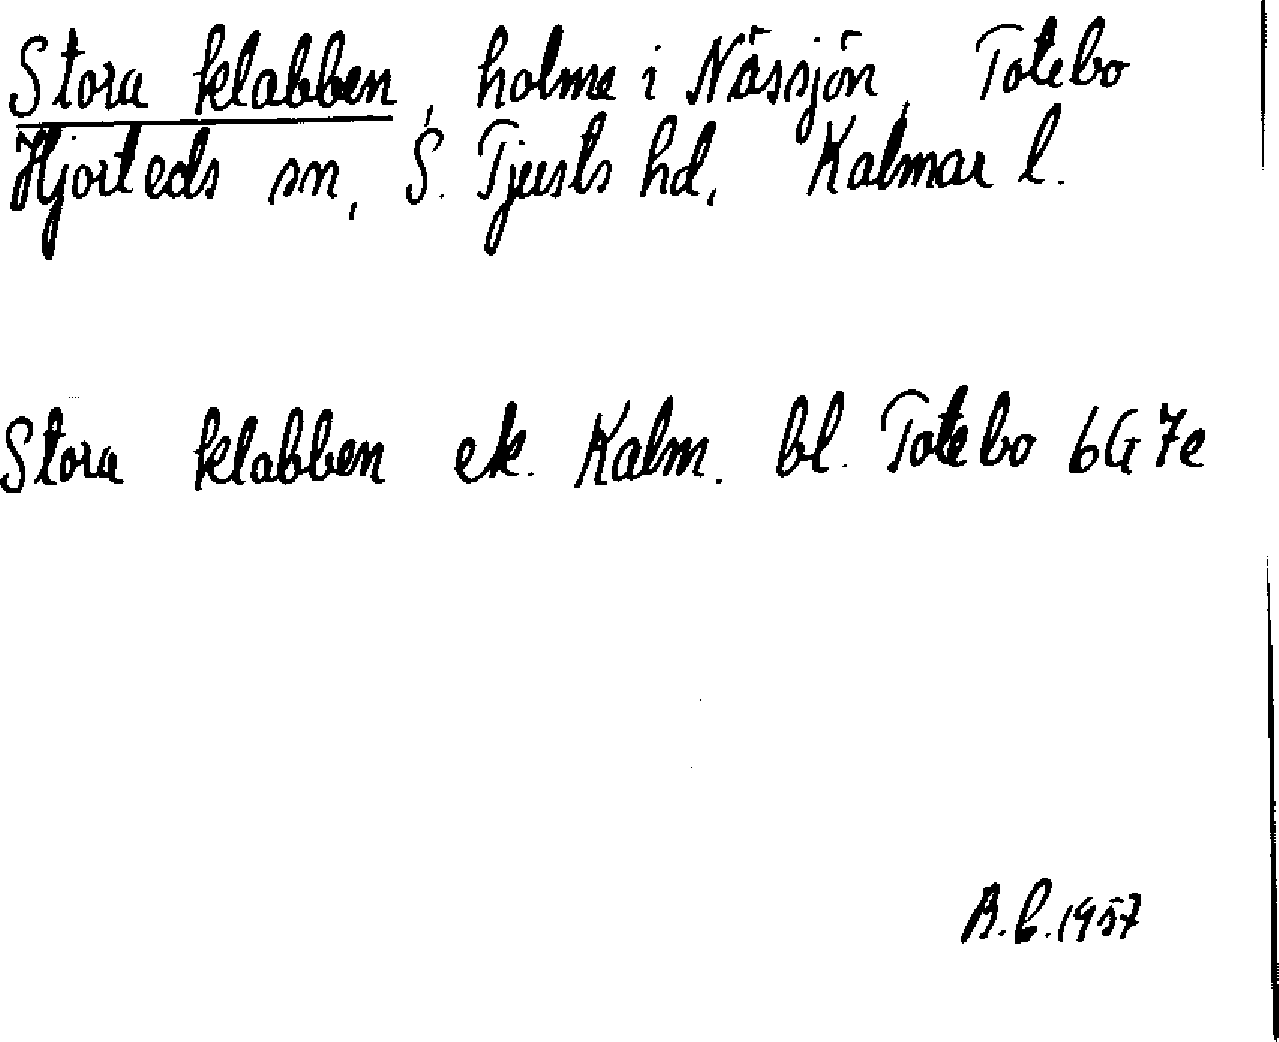 Stora klabben, holme i Nässjön, Totebo
Hjorteds sn, S. Tjusts hd, Kalmar l.
Stora klabben ek. Kalm. bl. Totebo 6G 7e
A.B. 1957